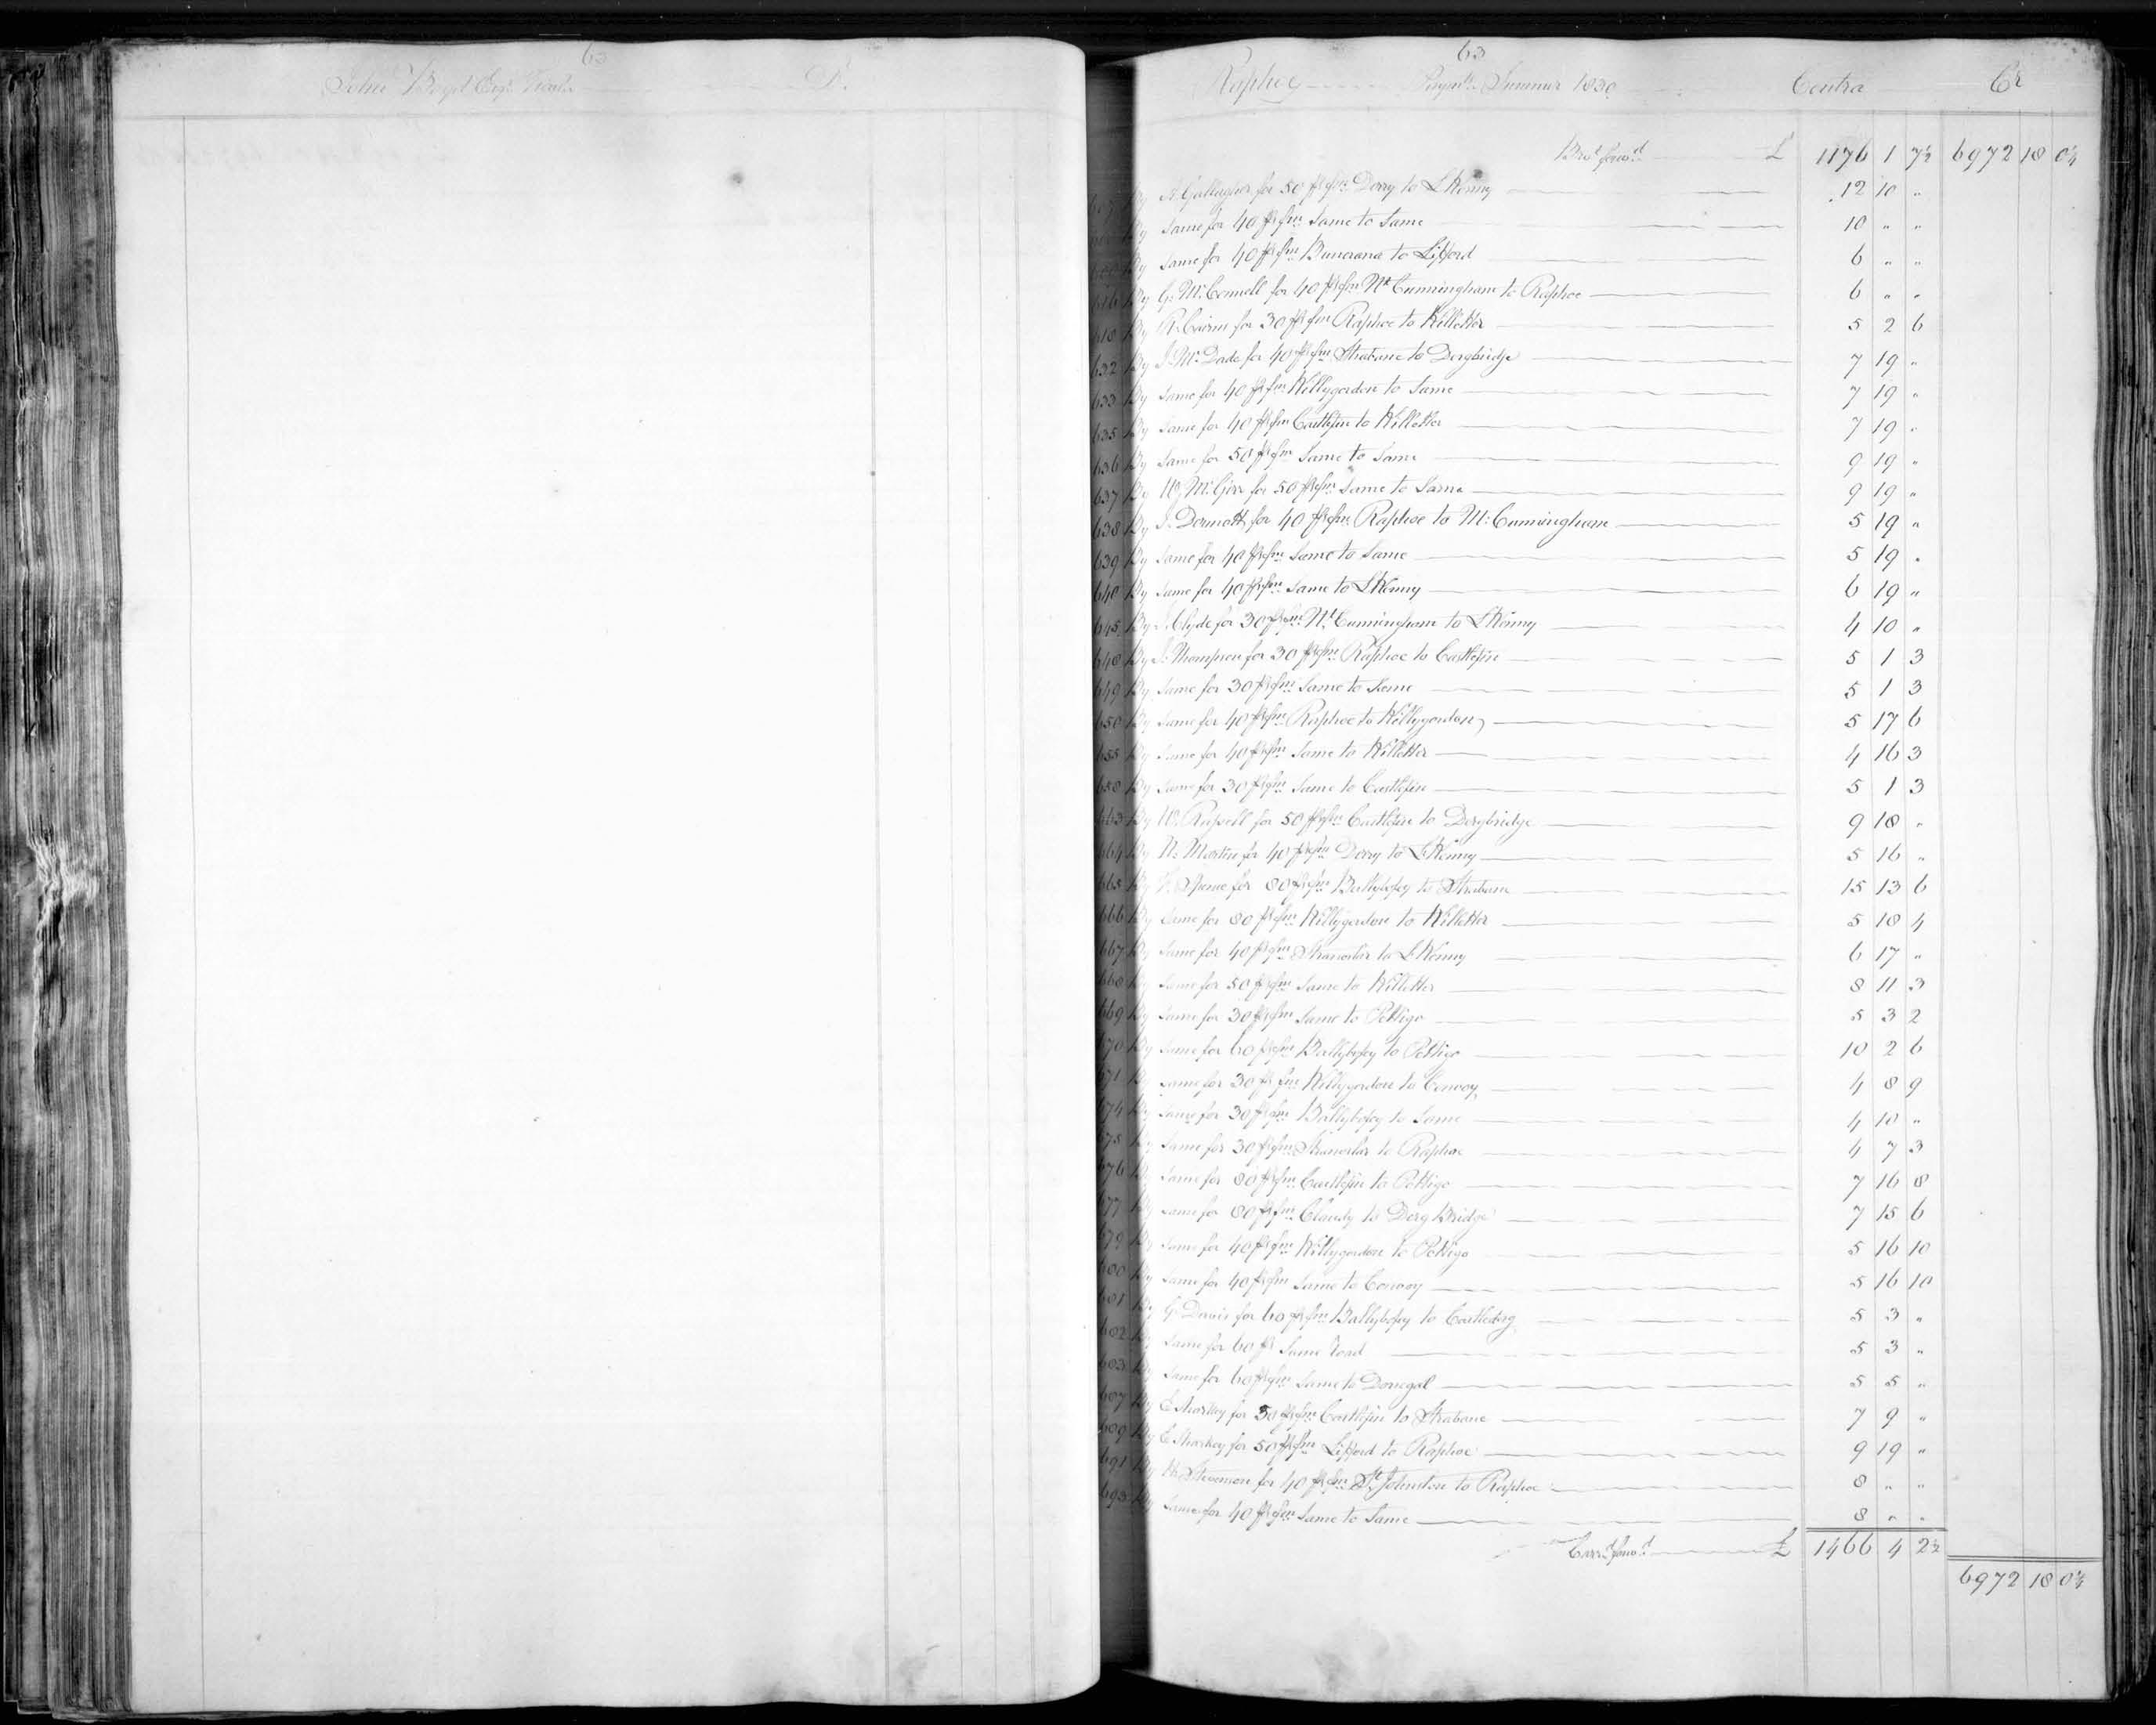 63
John Boyd Esqr. Treasr. Dr.
63
Raphoe Paymts. Summer 1830 Contra Cr
Brot. forwd. £ 1176 1 7½ 6972 18 0¾
By A. Gallagher for 50 ps fm Derry to LKenny 12 10 "
By Same for 40 ps fm Same to Same 10 " "
By Same for 40 ps fm Buncrana to Lifford 6 " "
616 By G. McConnell for 40 ps fm Nt Cunningham to Raphoe 6 " "
618 By R. Cairns for 30 ps fm Raphoe to Killetter 5 2 6
632 By J. McDade for 40 ps fm Strabane to Dergbridge 7 19 "
633 By Same for 40 ps fm Killygordon to Same 7 19 "
635 By Same for 40 ps fm Castlefin to Killetter 7 19 "
636 By Same for 50 ps fm Same to Same 9 19 "
637 By W. McGirr for 50 ps fm Same to Same 9 19 "
638 By J. Dermott for 40 ps fm Raphoe to M: Cunningham 5 19 "
639 By Same for 40 ps fm Same to Same 5 19 "
640 By Same for 40 ps fm Same to LKenny 6 19 "
645 By J. Clyde for 30 ps fm Nt Cunningham to LKenny 4 10 "
648 By J. Thompson for 30 ps fm Raphoe to Castlefin 5 1 3
649 By Same for 30 ps fm Same to Same 5 1 3
650 By Same for 40 ps fm Raphoe to Killygordon 5 17 6
655 By Same for 40 ps fm Same to Killetter 4 16 3
658 By Same for 30 ps fm Same to Castlefin 5 1 3
663 By W. Russell for 50 ps fm Castlefin to Dergbridge 9 18 "
664 By N. Martin for 40 ps fm Derry to LKenny 5 16 "
665 By Speme for 80 ps fm Ballybofey to Strabane 15 13 6
666 By Same for 80 ps fm Killygordon to Killetter 5 18 4
667 By Same for 40 ps fm Stranorlar to LKenny 6 17 "
668 By Same for 50 ps fm Same to Killetter 8 11 3
669 By Same for 30 ps fm Same to Pettigo 5 3 2
670 By Same for 60 ps fm Ballybofey to Pettigo 10 2 6
671 By Same for 30 ps fm Killygordon to Convoy 4 8 9
674 By Same for 30 ps fm Ballybofey to Same 4 10 "
675 By Same for 30 ps fm Stranorlar to Raphoe 4 7 3
676 By Same for 80 ps fm Castlefin to Pettigo 7 16 8
677 By Same for 80 ps fm Claudy to Derg Bridge 7 15 6
679 By Same for 40 ps fm Killygordon to Pettigo 5 16 10
680 By Same for 40 ps fm Same to Convoy 5 16 10
681 By G. Davis for 60 ps fm Ballybofey to Castlederg 5 3 "
682 By Same for 60 ps Same road 5 3 "
683 By Same for 60 ps fm Same to Donegal 5 5 "
687 By E. Sharkey for 50 ps fm Castlefin to Strabane 7 9 "
689 By E. Sharkey for 50 ps fm Lifford to Raphoe 9 19 "
691 By Stevenson for 40 ps fm St Johnston to Raphoe 8 " "
693 By Same for 40 ps fm Same to Same 8 " "
Carrd. forwd. £ 1466 4 2½
6972 18 0¾